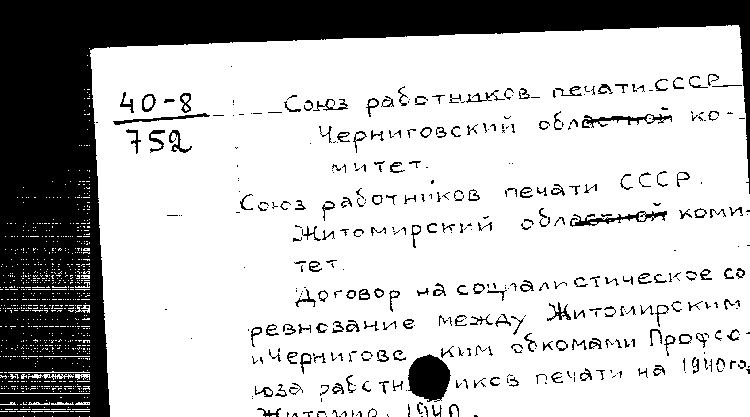 40-8
752
Союз работников печати СССР
Черниговский областной ко-
митет.
Союз работников печати СССР.
Житомирский областной коми-
тет.
Договор на социалистическое со
ревнование между Житомирским
и Чернигово ким обкомами Профсо-
юза работн иков печати на 1940 год,
Житомир, 1940.